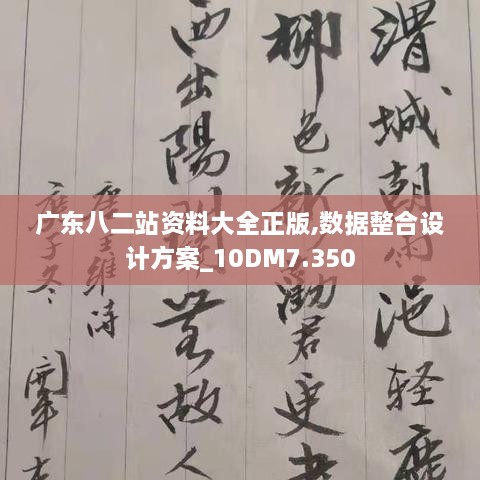 渭城朝雨浥轻塵
柳色新 勸君更
西出陽關無故人
唐王維詩
庚子冬
广东八二站资料大全正版,数据整合设
计方案_10DM7.350